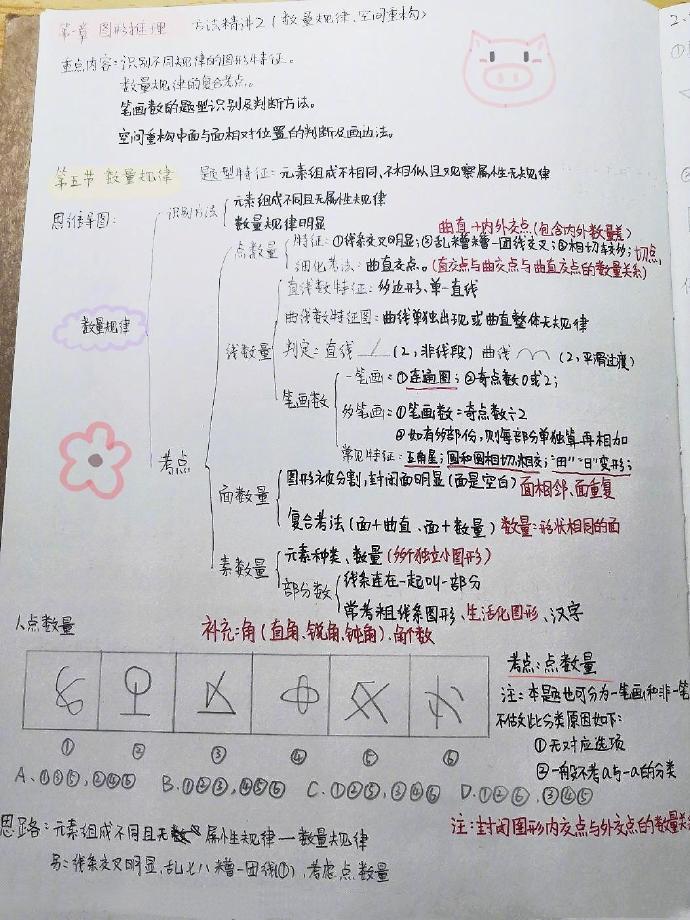 第一章 图形推理 方法精讲2（数量规律、空间重构）
重点内容：识别不同规律的图形特征。
数量规律的复合考点。
笔画数的题型识别及判断方法。
空间重构中面与面相对位置的判断及画边法。
第五节 数量规律 题型特征：元素组成不相同、不相似且观察属性无规律
思维导图：
识别方法
元素组成不同且无属性规律
数量规律明显
曲直+内外交点（包含内外数量差）
点数量
特征：①线条交叉明显；②乱糟糟一团线交叉；③相切较多；切点
细化考法：曲直交点。（直交点与曲交点与曲直交点的数量关系）
直线数特征：多边形、单一直线
曲线数特征图：曲线单独出现或曲直整体无规律
数量规律
线数量
判定：直线 （2，非线段）曲线 （2，平滑过度）
笔画数
一笔画：①连通图；②奇点数0或2；
多笔画：①笔画数=奇点数÷2
②如有多部份，则每部分单独算再相加
常见特征：五角星；圆和圆相切、相交；"田""日"变形；
考点
面数量
图形被分割，封闭面明显（面是空白）面相邻、面重复
复合考法（面+曲直、面+数量）数量=形状相同的面
素数量
元素种类、数量（多个独立小图形）
部分数
线条连在一起叫一部分
常考粗线条图形、生活化图形、汉字
人点数量
补充：角（直角、锐角、钝角）、角个数
考点：点数量
注：本题也可分为一笔画和非一笔
不做如此分类原因如下：
①无对应选项
②一般不考a与-a的分类
① ② ③ ④ ⑤ ⑥
A、①③⑤，②④⑥ B、①②③，④⑤⑥ C、①②⑤，③④⑥ D、①②⑥，③④⑤
思路：元素组成不同且无属性规律—数量规律
另：线条交叉明显，乱七八糟一团线（①），考虑点数量
注：封闭图形内交点与外交点的数量关系